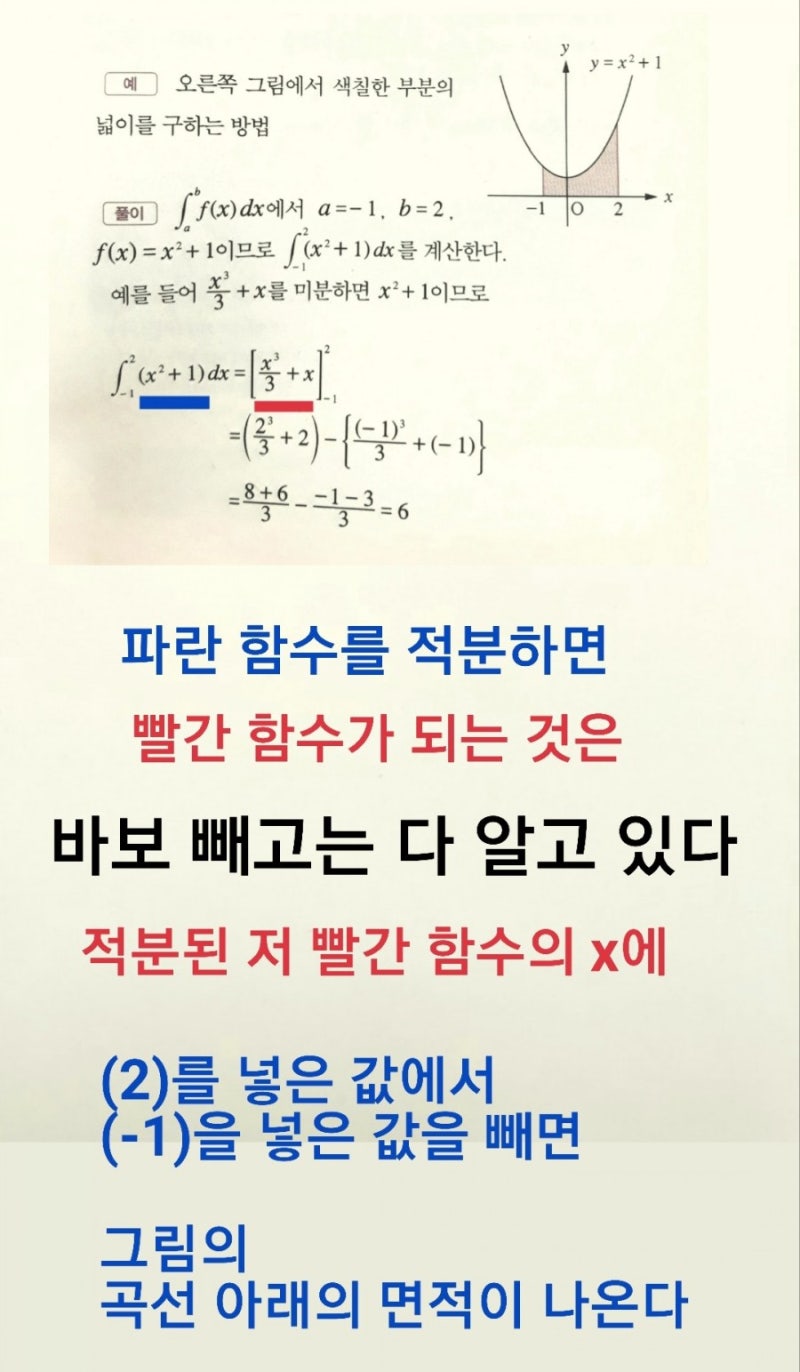 예 오른쪽 그림에서 색칠한 부분의
넓이를 구하는 방법
y
y = x² + 1
x
-1 O 2
풀이 ∫ₐᵇ f(x) dx에서 a = -1, b = 2,
f(x) = x² + 1이므로 ∫₋₁² (x² + 1) dx를 계산한다.
예를 들어 x³/3 + x를 미분하면 x² + 1이므로
∫₋₁² (x² + 1) dx = [x³/3 + x]₋₁²
= (2³/3 + 2) - {(-1)³/3 + (-1)}
= 8+6/3 - -1-3/3 = 6
파란 함수를 적분하면
빨간 함수가 되는 것은
바보 빼고는 다 알고 있다
적분된 저 빨간 함수의 x에
(2)를 넣은 값에서
(-1)을 넣은 값을 빼면
그림의
곡선 아래의 면적이 나온다